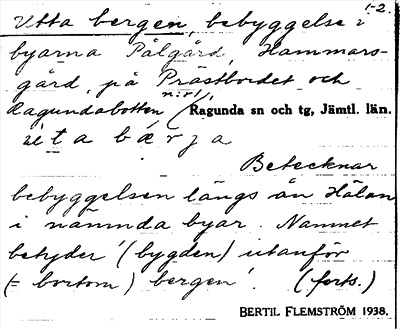 1-2.
Utta bergen, bebyggelse i
byarna Pålgård, Hammars-
gård, på Prästbordet och
Ragundabotten (Ragunda sn och tg, Jämtl. län.
ta bærja
Betecknar
bebyggelsen längs ån Hälan
i nämnda byar. Namnet
betyder '(bygden) utanför
(= bortom) bergen'. (forts.)
BERTIL FLEMSTRÖM 1938.